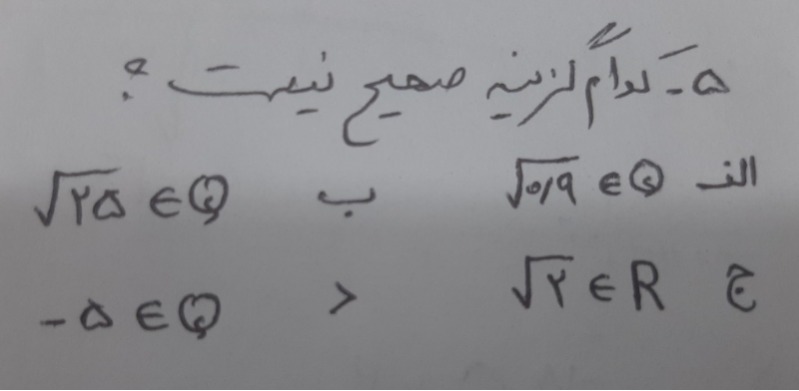 ۵- کدام گزینه صحیح نیست ؟
الف √۰/۹ ∈ Q ب √۲۵ ∈ Q
ج √۲ ∈ R د -۵ ∈ Q